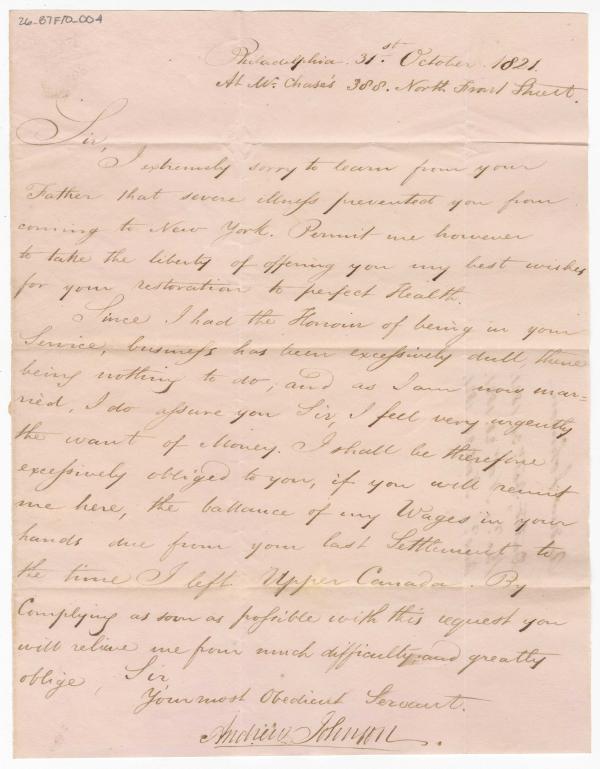 26-87F10-004
Philadelphia. 31st October. 1821.
At Mr. Chase's 388. North Front Street.
Sir,
I extremely sorry to learn from your
Father that severe illness prevented you from
coming to New York. Permit me however
to take the liberty of offering you my best wishes
for your restoration to perfect Health.
Since I had the Honour of being in your
Service, business has been excessively dull, there
being nothing to do, and as I am now mar=
ried, I do assure you Sir, I feel very urgently
the want of Money. I shall be therefore
excessively obliged to you, if you will remit
me here, the ballance of my Wages in your
hands due from your last Settlement to
the time I left Upper Canada. By
Complying as soon as possible with this request you
will relieve me from much difficulty and greatly
oblige, Sir,
Your most Obedient Servant.
Andrew Johnson.